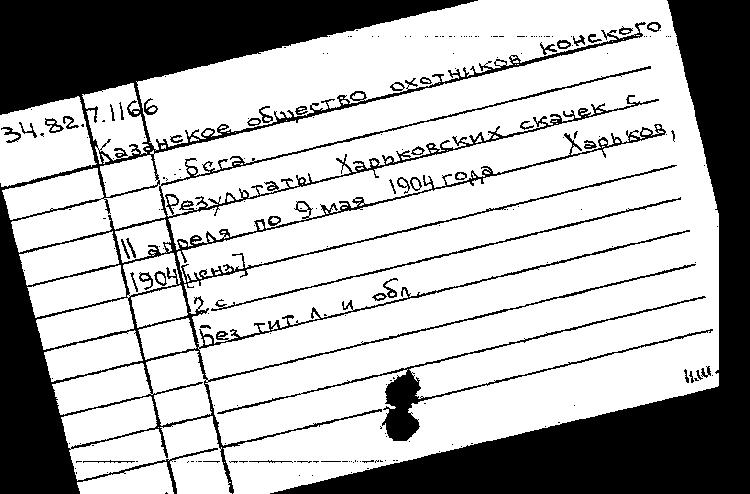 34.82.7.1166
Казанское общество охотников конского
бега.
Результаты Харьковских скачек с
11 апреля по 9 мая 1904 года. Харьков,
1904 [ценз.].
2 с.
Без тит. л. и обл.